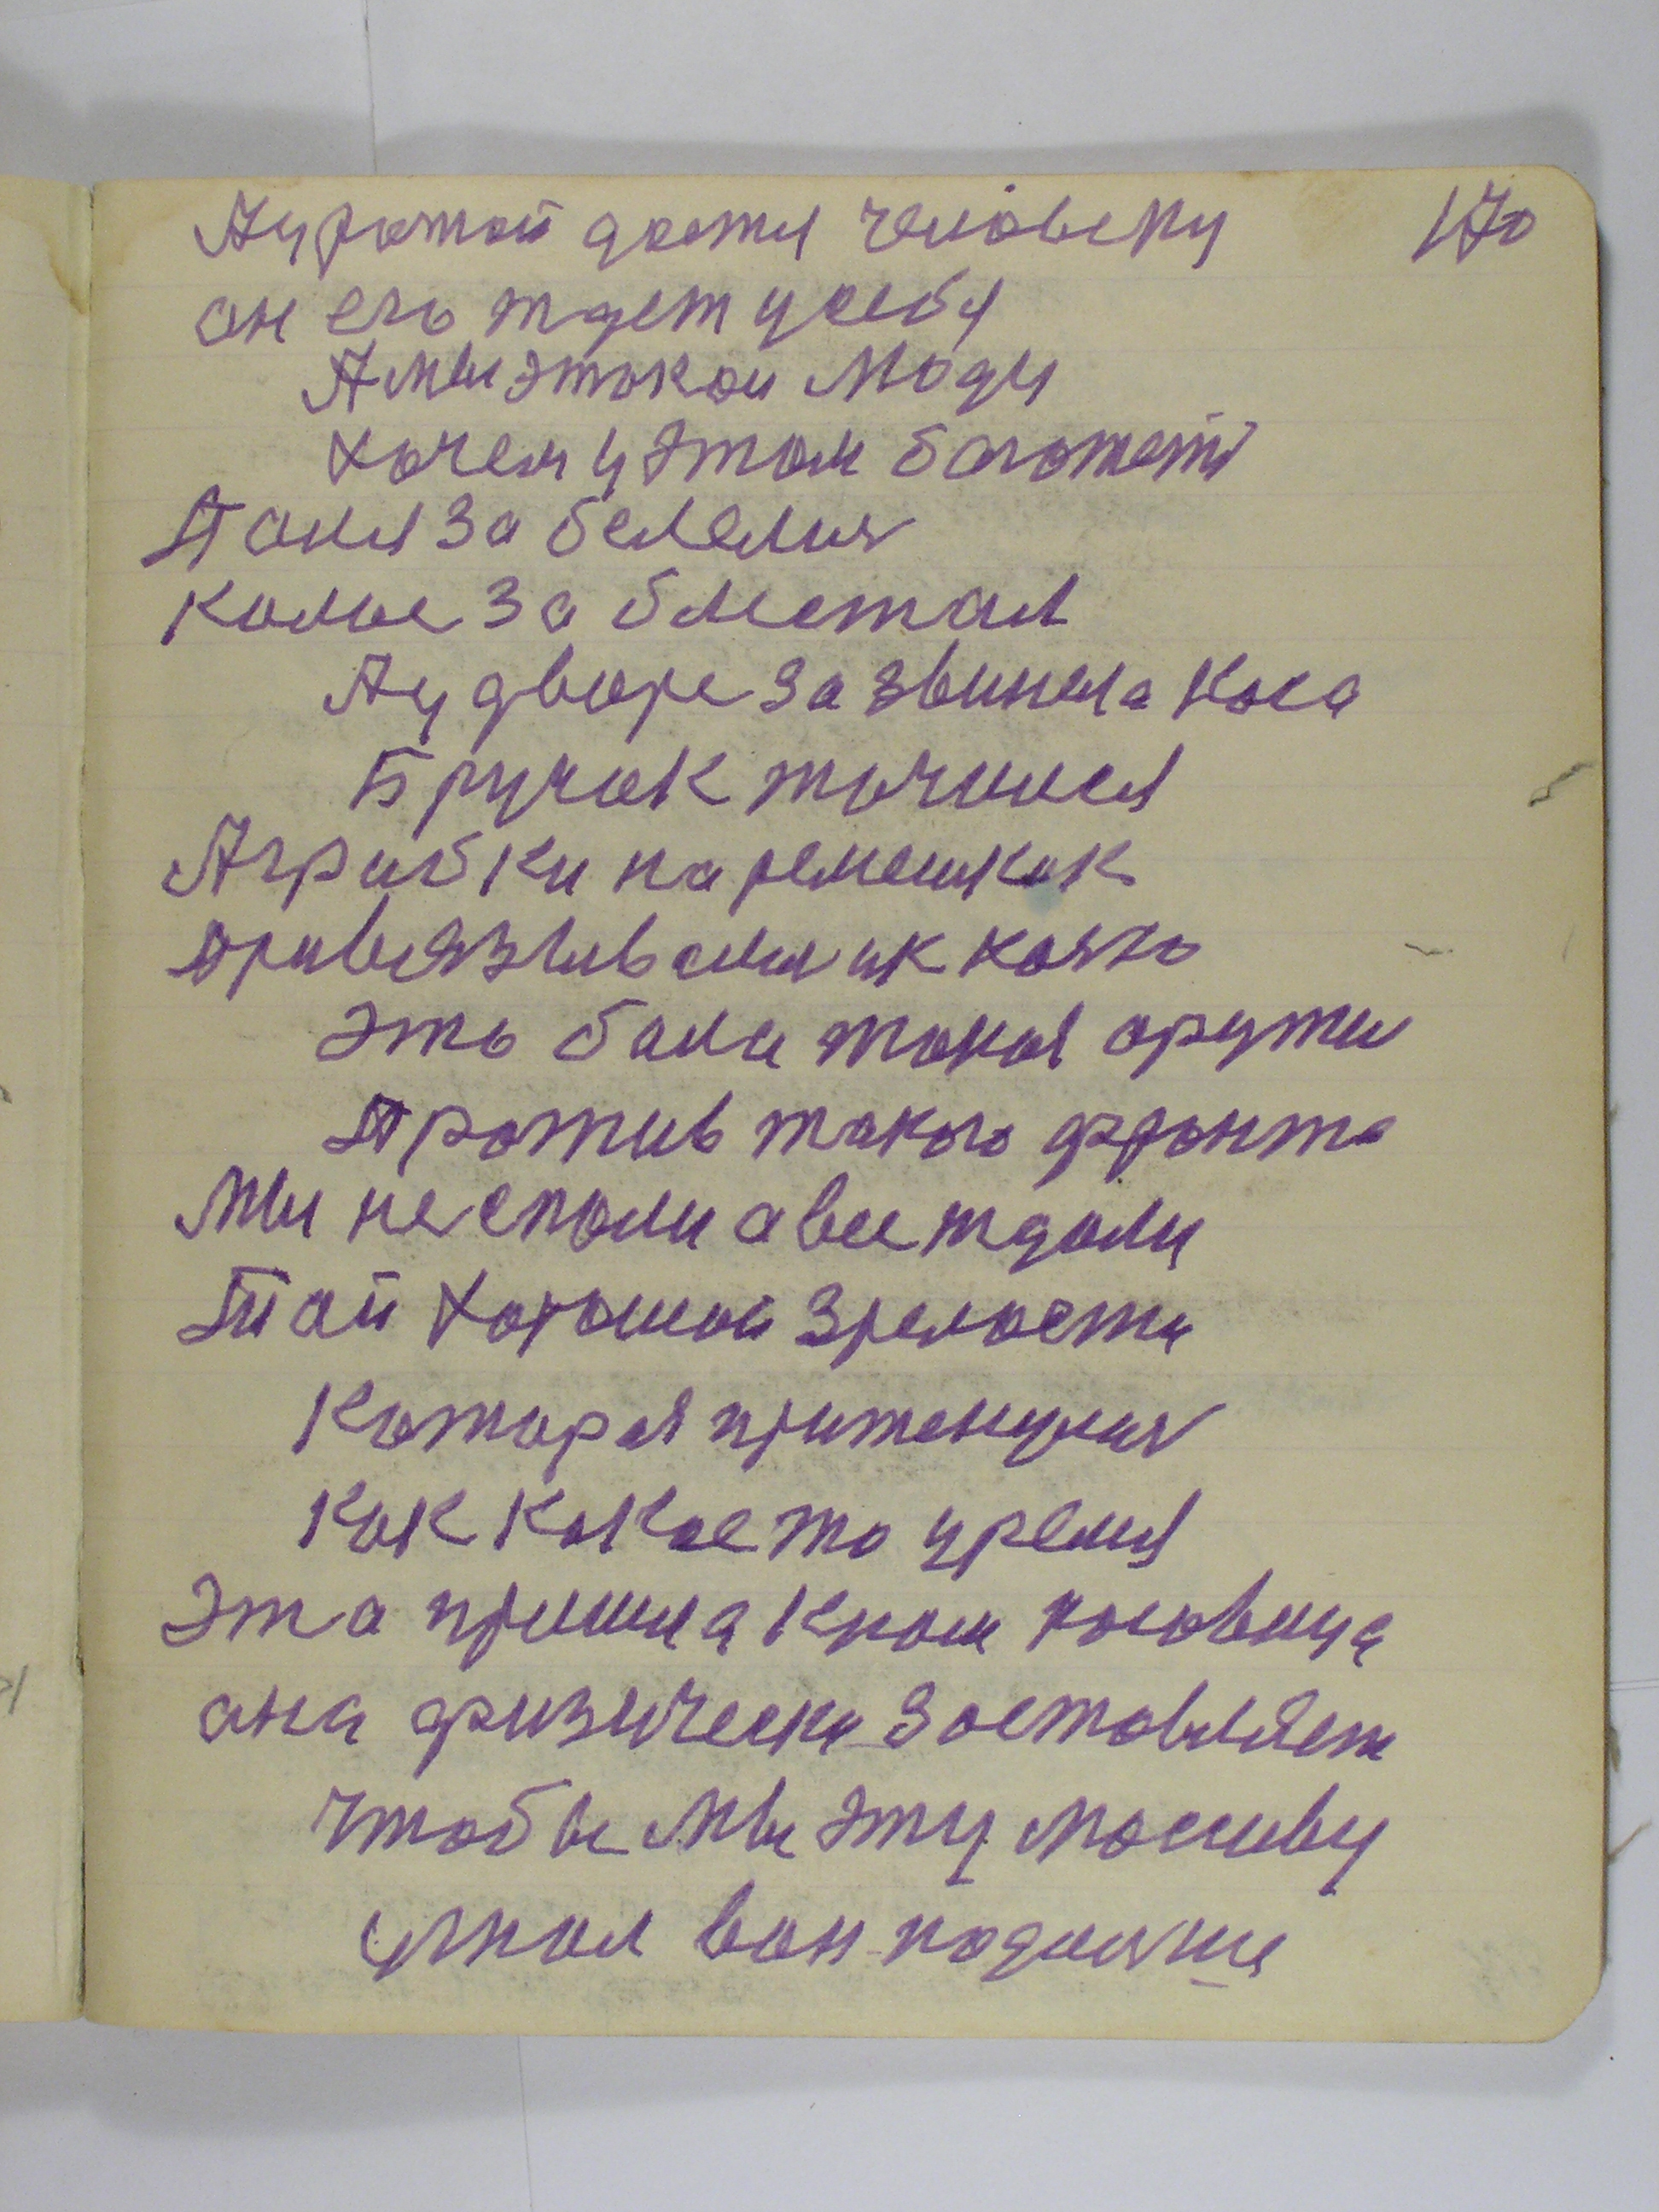 Аурожай дастя человеку 170
он его ждет усебя
Амы этакои Моды
хочем у этом богатеть
Паня забелелия
Колос за блестал
Ау дворе зазвинела Коса
Бручок точился
Аграбки на ремешках
привязывалия ик косю
Это была такая оружи
Против такого фронта
Мы не спали а все ждали
Тай хорошай Зрелости
Каторая притенулия
Как какое то уремя
Эта пришла К нам косовица
она физически Заставляет
чтобы мы эту массиву
вон